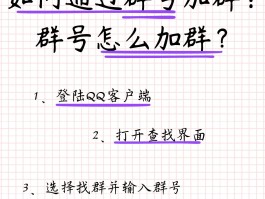 如何通过群号加群？
群号怎么加群？
1、登陆QQ客户端
2、打开查找界面
3、选择找群并输入群号